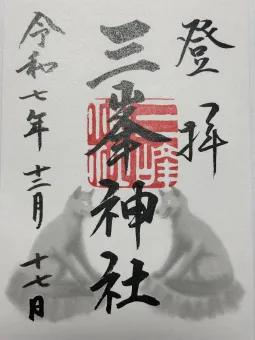 登拝
三峯神社
令和七年十二月十七日